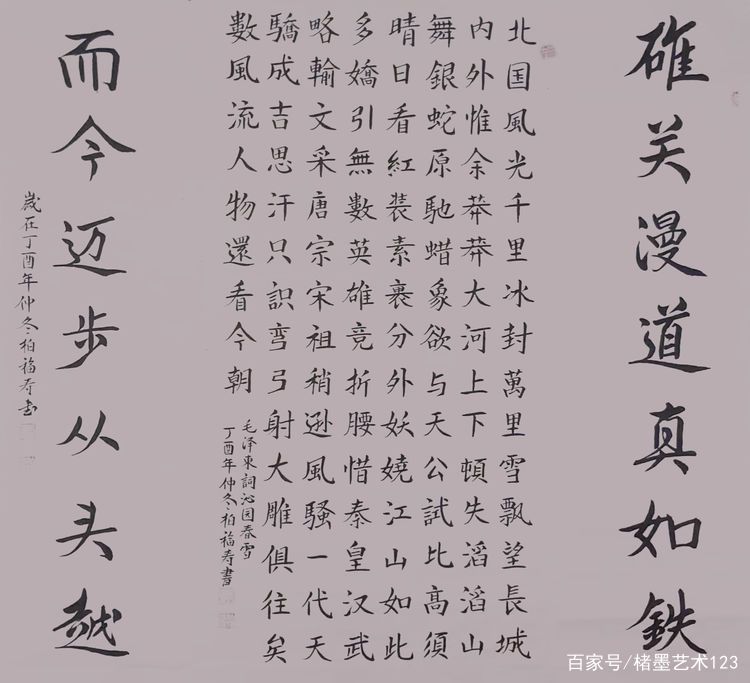 雄关漫道真如鉄
北国風光千里冰封萬里雪飄望長城
内外惟余莽莽大河上下頓失滔滔山
舞銀蛇原馳蜡象欲与天公試比高須
晴日看紅装素裹分外妖嬈江山如此
多嬌引無數英雄竞折腰惜秦皇汉武
略輸文采唐宗宋祖稍遜風騷一代天
驕成吉思汗只識弯弓射大雕俱往矣
數風流人物還看今朝
毛泽東詞沁园春雪
丁酉年仲冬柏福寿書
而今迈步从头越
歲在丁酉年仲冬柏福寿书
百家号/楮墨艺术123